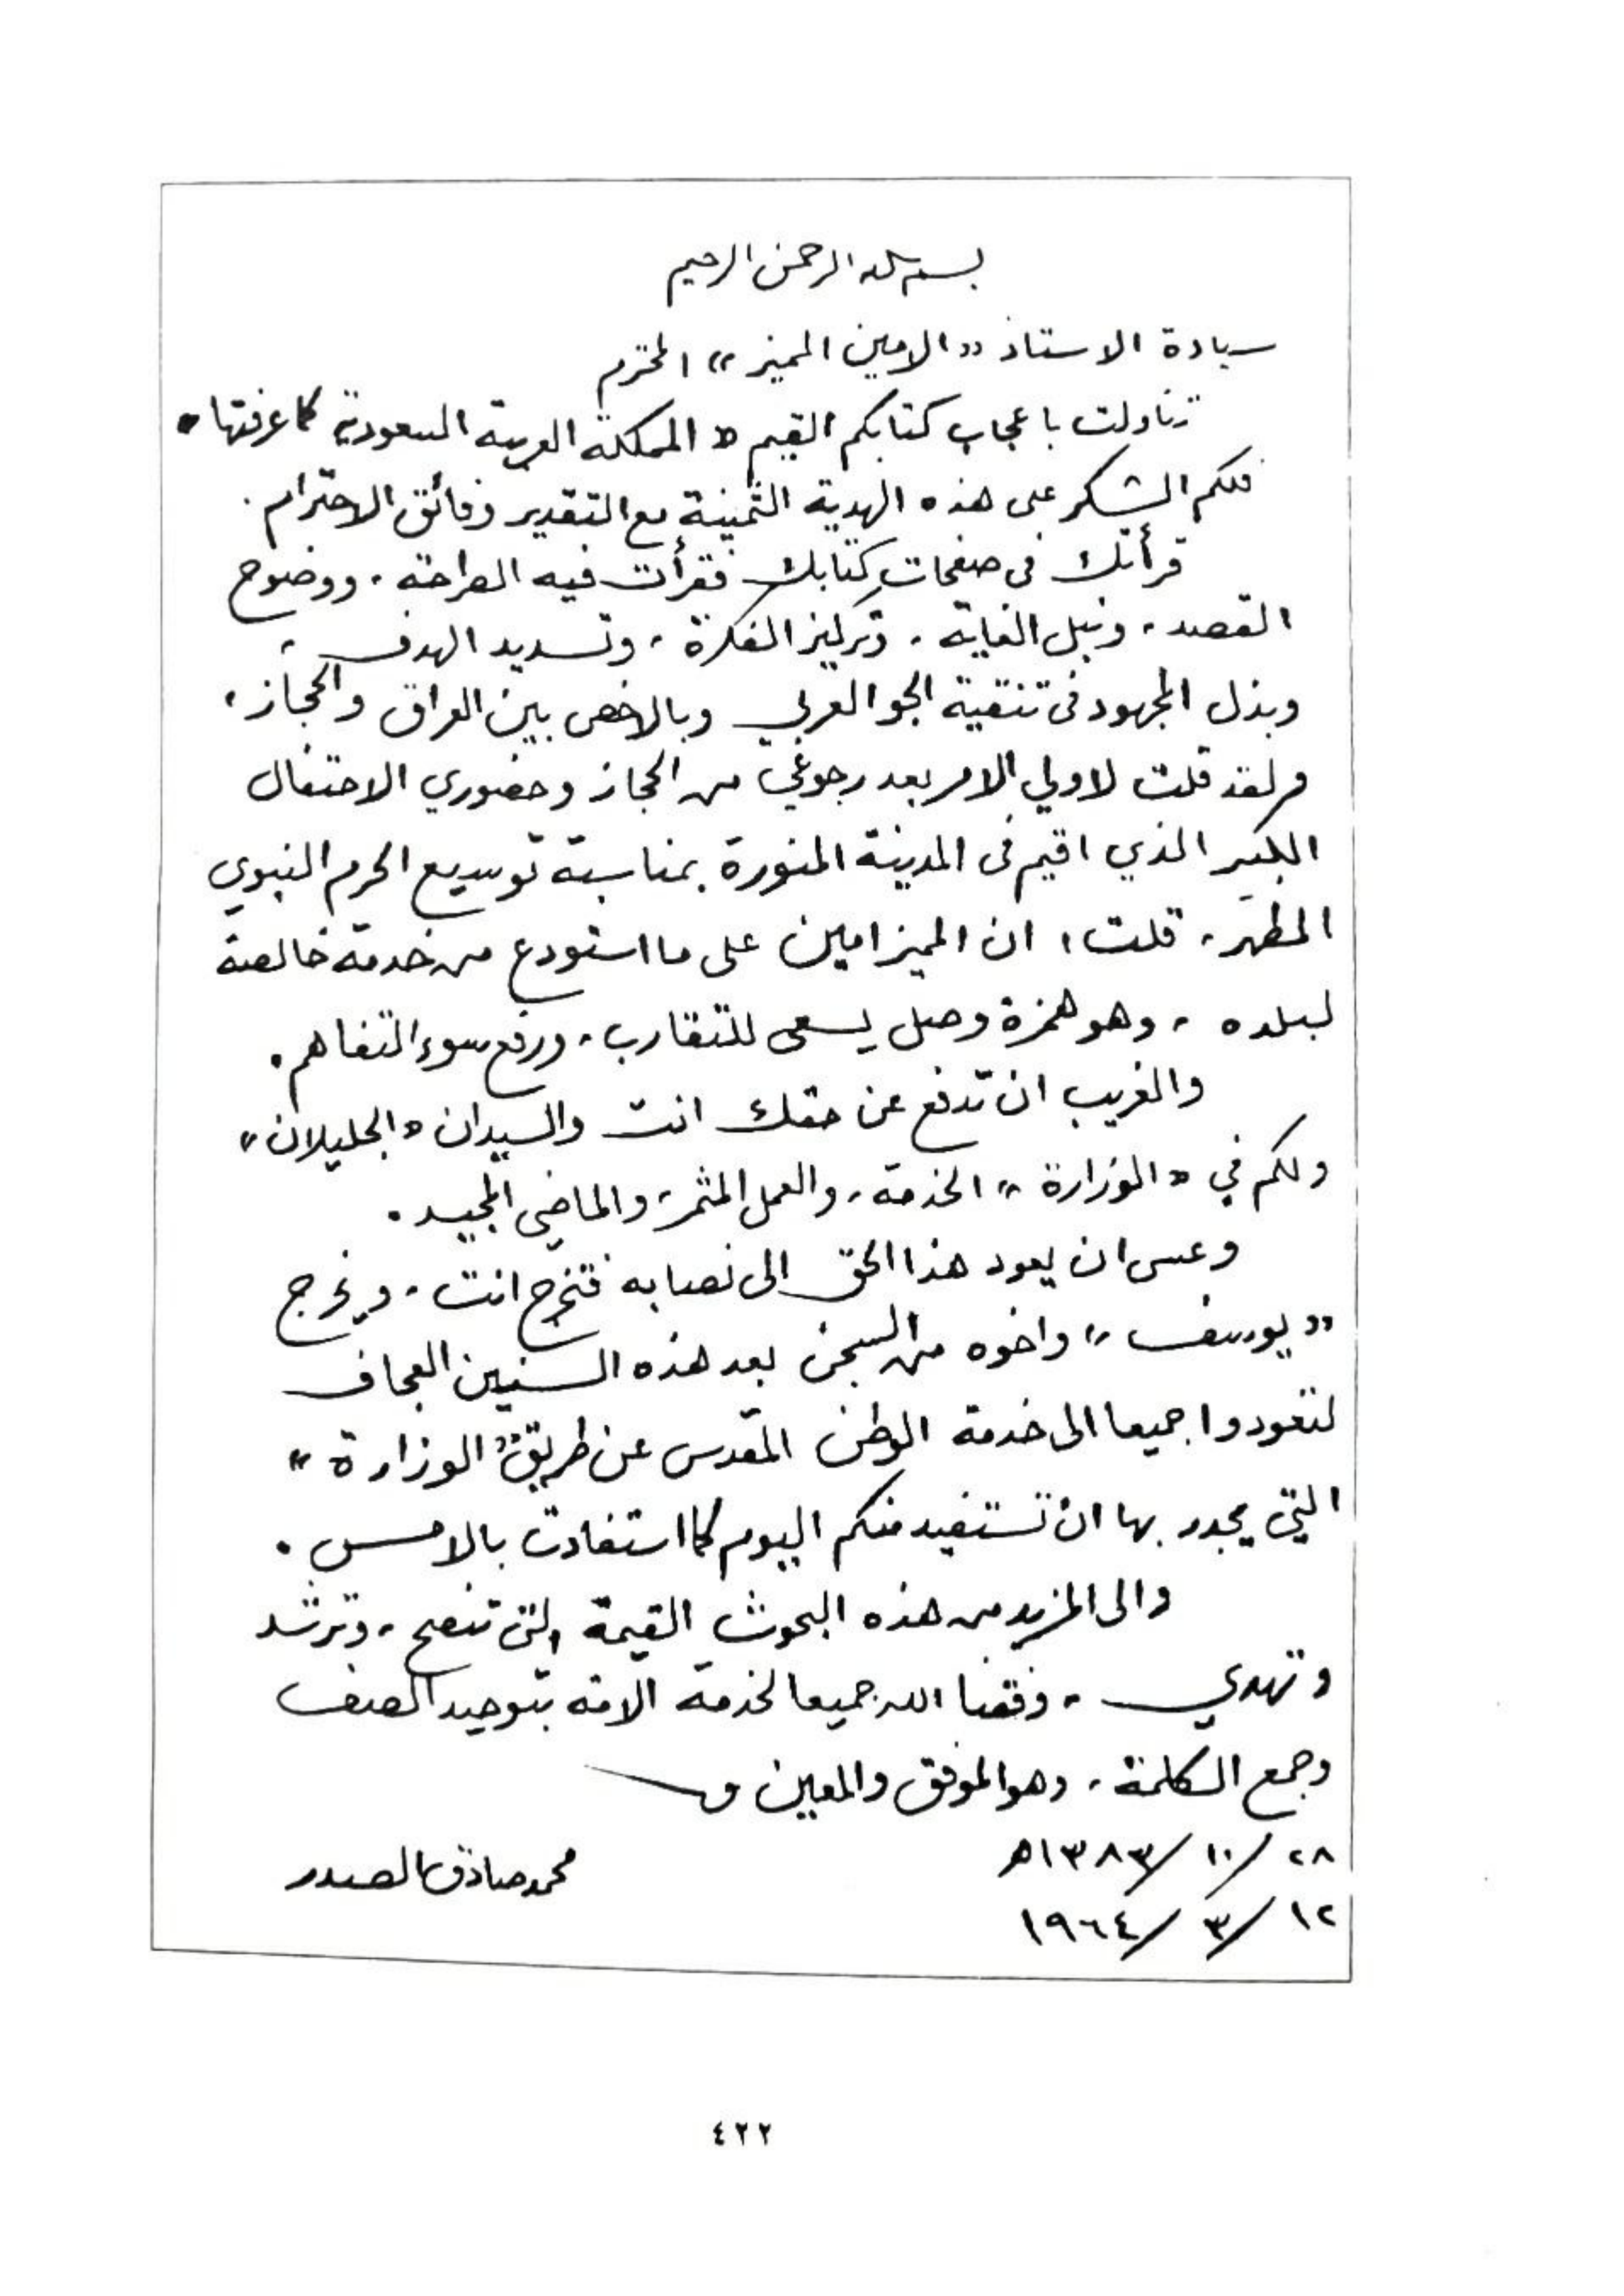 بسم الله الرحمن الرحيم
سيادة الاستاذ «الامين المميز» المحترم
تناولت باعجاب كتابكم القيم «المملكة العربية السعودية كما عرفتها»
فلكم الشكر على هذه الهدية الثمينة مع التقدير وفائق الاحترام.
قرأتك في صفحات كتابك فقرأت فيه الصراحة، ووضوح
القصد، ونبل الغاية، وتركيز الفكرة، وتسديد الهدف،
وبذل المجهود في تنقية الجو العربي وبالاخص بين العراق والحجاز،
ولقد قلت لاولي الامر بعد رجوعي من الحجاز وحضوري الاحتفال
الكبير الذي اقيم في المدينة المنورة بمناسبة توسيع الحرم النبوي
المطهر، قلت، ان المميز امين على ما استودع من خدمة خالصة
لبلده، وهو همزة وصل يسعى للتقارب، ورفع سوء التفاهم.
والغريب ان تدفع عن حقك انت والسيدان «الجليلان»
ولكم في «الوزارة» الخدمة، والعمل المثمر، والماضي المجيد.
وعسى ان يعود هذا الحق الى نصابه فتخرج انت، ويخرج
«يوسف» واخوه من السجن بعد هذه السنين العجاف
لتعودوا جميعا الى خدمة الوطن المقدس عن طريق «الوزارة»
التي يجدر بها ان تستفيد منكم اليوم كما استفادت بالامس.
والى المزيد من هذه البحوث القيمة التي تنصح، وترشد
وتهدي، وفقنا الله جميعا لخدمة الامة بتوحيد الصف
وجمع الكلمة، وهو الموفق والمعين
٢٨/ ١٠/ ١٣٨٣هـ
محمد صادق الصدر
١٢/ ٣/ ١٩٦٤
٤٢٢